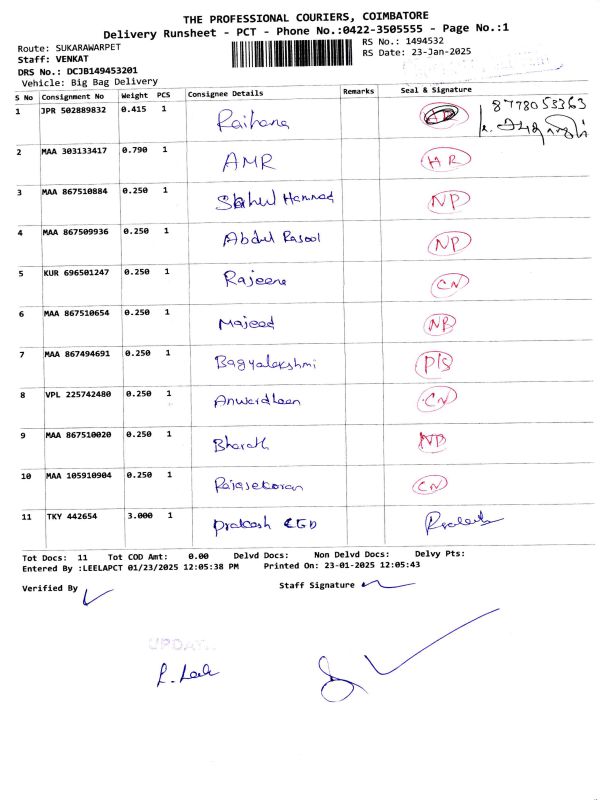 THE PROFESSIONAL COURIERS, COIMBATORE
Delivery Runsheet - PCT - Phone No.:0422-3505555 - Page No.:1
Route: SUKARAWARPET
RS No.: 1494532
Staff: VENKAT
RS Date: 23-Jan-2025
DRS No.: DCJB149453201
Vehicle: Big Bag Delivery
S No Consignment No Weight PCS Consignee Details Remarks Seal & Signature
8778053363
1 JPR 502889832 0.415 1 Raihana
2 MAA 303133417 0.790 1 AMR HR
3 MAA 867510884 0.250 1 Shahul Hammad NP
4 MAA 867509936 0.250 1 Abdul Rasool NP
5 KUR 696501247 0.250 1 Rajeena CN
6 MAA 867510654 0.250 1 Majeed NP
7 MAA 867494691 0.250 1 Bagyalakshmi P/S
8 VPL 225742480 0.250 1 Anwardheen CN
9 MAA 867510020 0.250 1 Bharath NP
10 MAA 105910904 0.250 1 Rajasekaran CN
11 TKY 442654 3.000 1 Prakash Prakash
Tot Docs: 11 Tot COD Amt: 0.00 Delvd Docs: Non Delvd Docs: Delvy Pts:
Entered By :LEELAPCT 01/23/2025 12:05:38 PM Printed On: 23-01-2025 12:05:43
Verified By Staff Signature